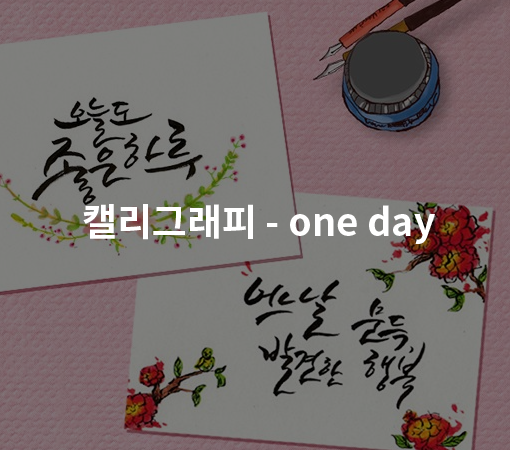 오늘도
좋은하루
캘리그래피 - one day
어느날 문득
발견한 행복